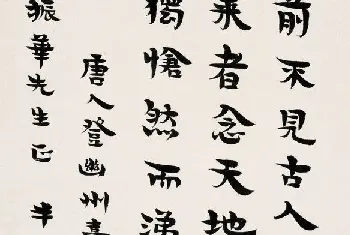 前不見古人
来者念天地
獨愴然而涕
唐人登幽州臺
振華先生正